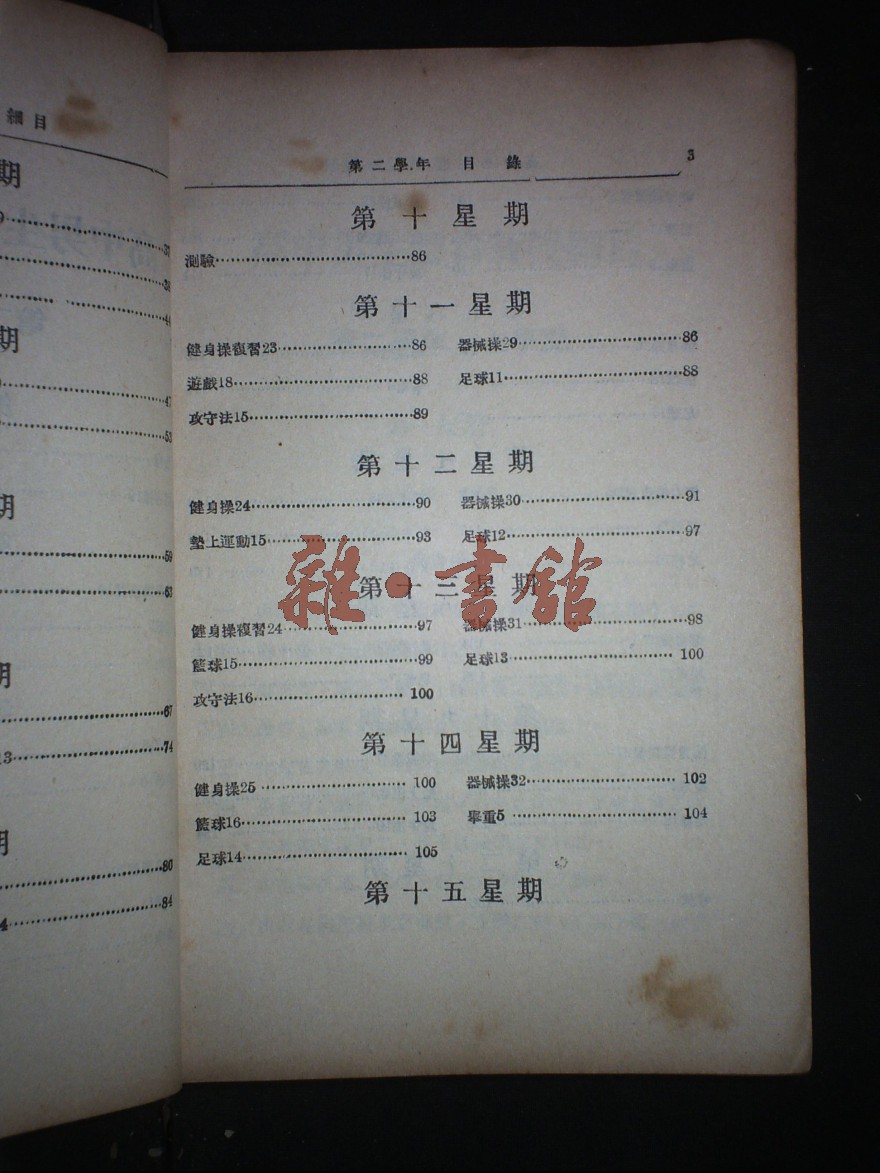 細目
期
37
38
44
期
47
53
期
59
63
期
67
13 74
期
80
4 84
第二學年 目錄 3
第十星期
測驗 86
第十一星期
健身操複習23 86 器械操29 86
遊戲18 88 足球11 88
攻守法15 89
第十二星期
健身操24 90 器械操30 91
墊上運動15 93 足球12 97
雜·書館
第十三星期
健身操複習24 97 器械操31 98
籃球15 99 足球13 100
攻守法16 100
第十四星期
健身操25 100 器械操32 102
籃球16 103 舉重5 104
足球14 105
第十五星期